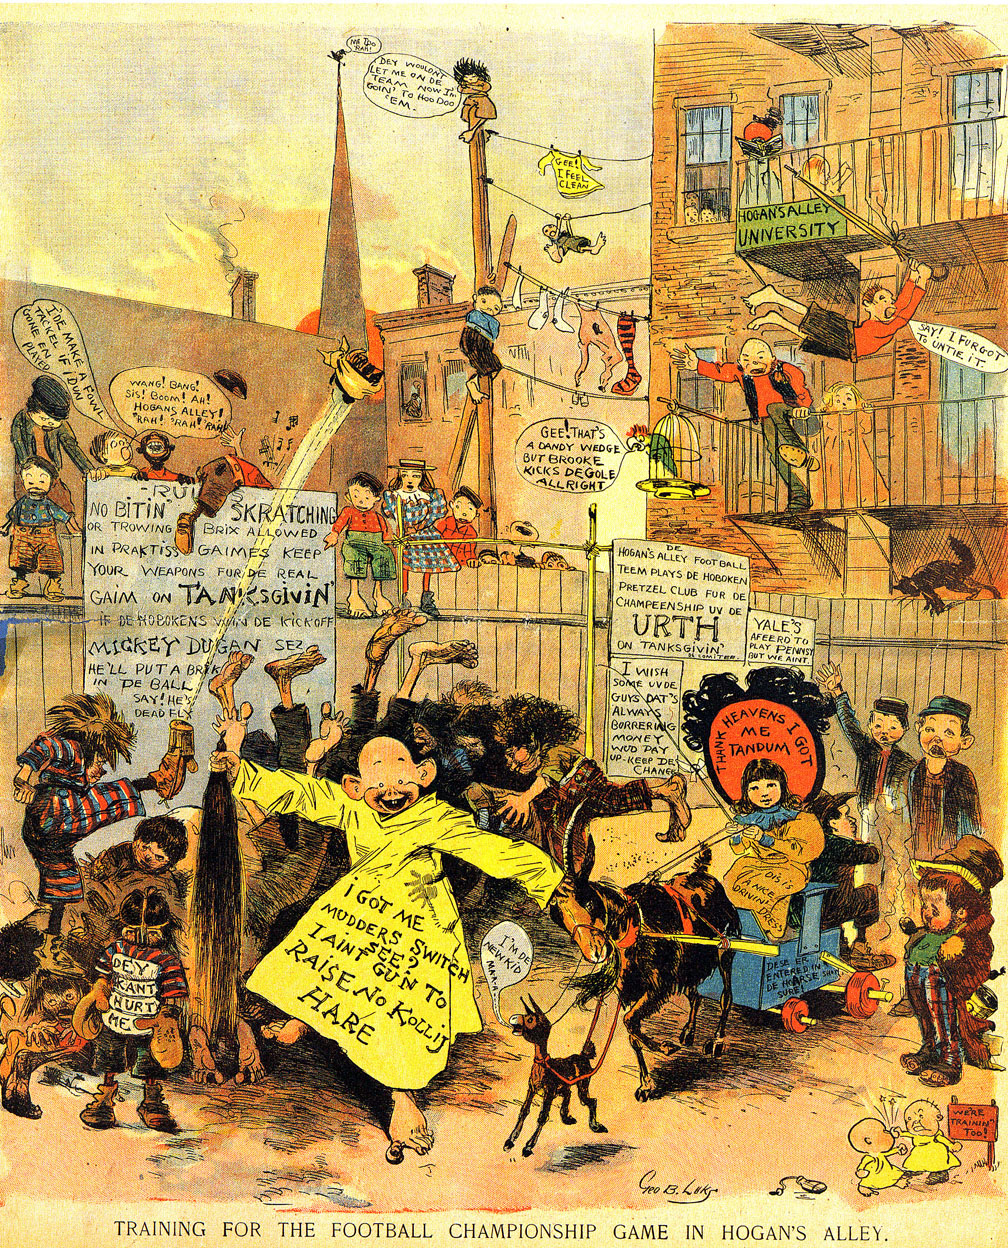 ME TOO
RAH!
DEY WOULDNT
LET ME ON DE
TEAM NOW I'M
GOIN' TO HOO DOO
'EM.
GEE!
I FEEL
CLEAN
HOGAN'S ALLEY
UNIVERSITY
SAY! I FURGOT
TO UNTIE IT.
I'DE MAKE A FOWL
TACKEL IF I DUN
GONE EN
PLAYED
WANG! BANG!
SIS! BOOM! AH!
HOGANS ALLEY!
'RAH! 'RAH! 'RAH!
GEE! THAT'S
A DANDY WEDGE
BUT BROOKE
KICKS DE GOLE
ALLRIGHT
RULES
NO BITIN' SKRATCHING
OR TROWING BRIX ALLOWED
IN PRAKTISS GAIMES KEEP
YOUR WEAPONS FUR DE REAL
GAIM ON TANKSGIVIN'
IF DE HOBOKENS WIN DE KICKOFF
MICKEY DUGAN SEZ
HE'LL PUT A BRIK
IN DE BALL
SAY! HE'S
DEAD FLY
DE
HOGAN'S ALLEY FOOTBALL
TEEM PLAYS DE HOBOKEN
PRETZEL CLUB FUR DE
CHAMPEENSHIP UV DE
URTH
ON TANKSGIVIN'
DE COMITEE.
YALE'S
AFEERD TO
PLAY PENNSY
BUT WE AINT.
I WISH
SOME UV DE
GUYS DAT'S
ALWAYS
BORRERING
MONEY
WUD PAY
UP-KEEP DE
CHANGE
THANK HEAVENS I GOT
ME
TANDUM
DIS IS
DRIVIN'
DESE ER
ENTERED IN
DE HOARSE SHOW
SURE!
I GOT ME
MUDDERS SWITCH
SEE?
I AINT GUN TO
RAISE NO KOLLIJ
HARE
DEY
KANT
HURT
ME
I'M DE
NEW KID
WE'RE
TRAININ'
TOO!
GEO B. LUKS
TRAINING FOR THE FOOTBALL CHAMPIONSHIP GAME IN HOGAN'S ALLEY.